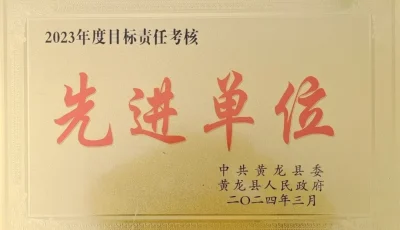 2023年度目标责任考核
先进单位
中共黄龙县委
黄龙县人民政府
二〇二四年三月